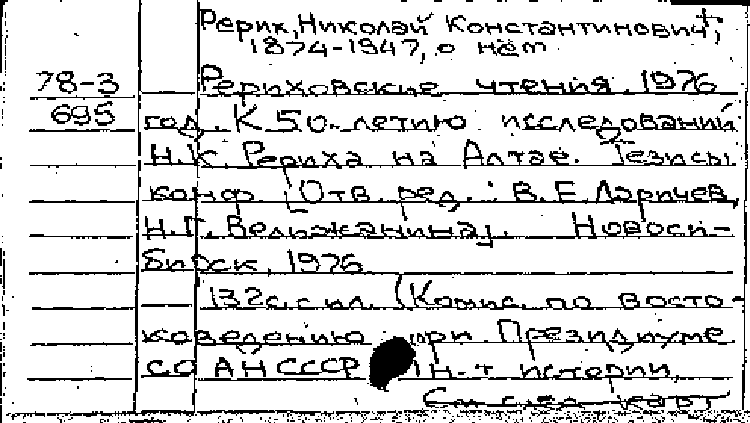 Рерих, Николай Константинович,
1874-1947, о нём
78-3 Рериховские чтения. 1976
695 год. К 50-летию исследований
Н.К. Рериха на Алтае. Тезисы
конф. [Отв. ред.: В.Е. Ларичев,
Н.Г. Велижанина]. Новоси-
бирск, 1976
132 с. с ил. (Комис. по восто-
коведению при Президиуме
СО АН СССР Ин-т истории,
См. след. карт